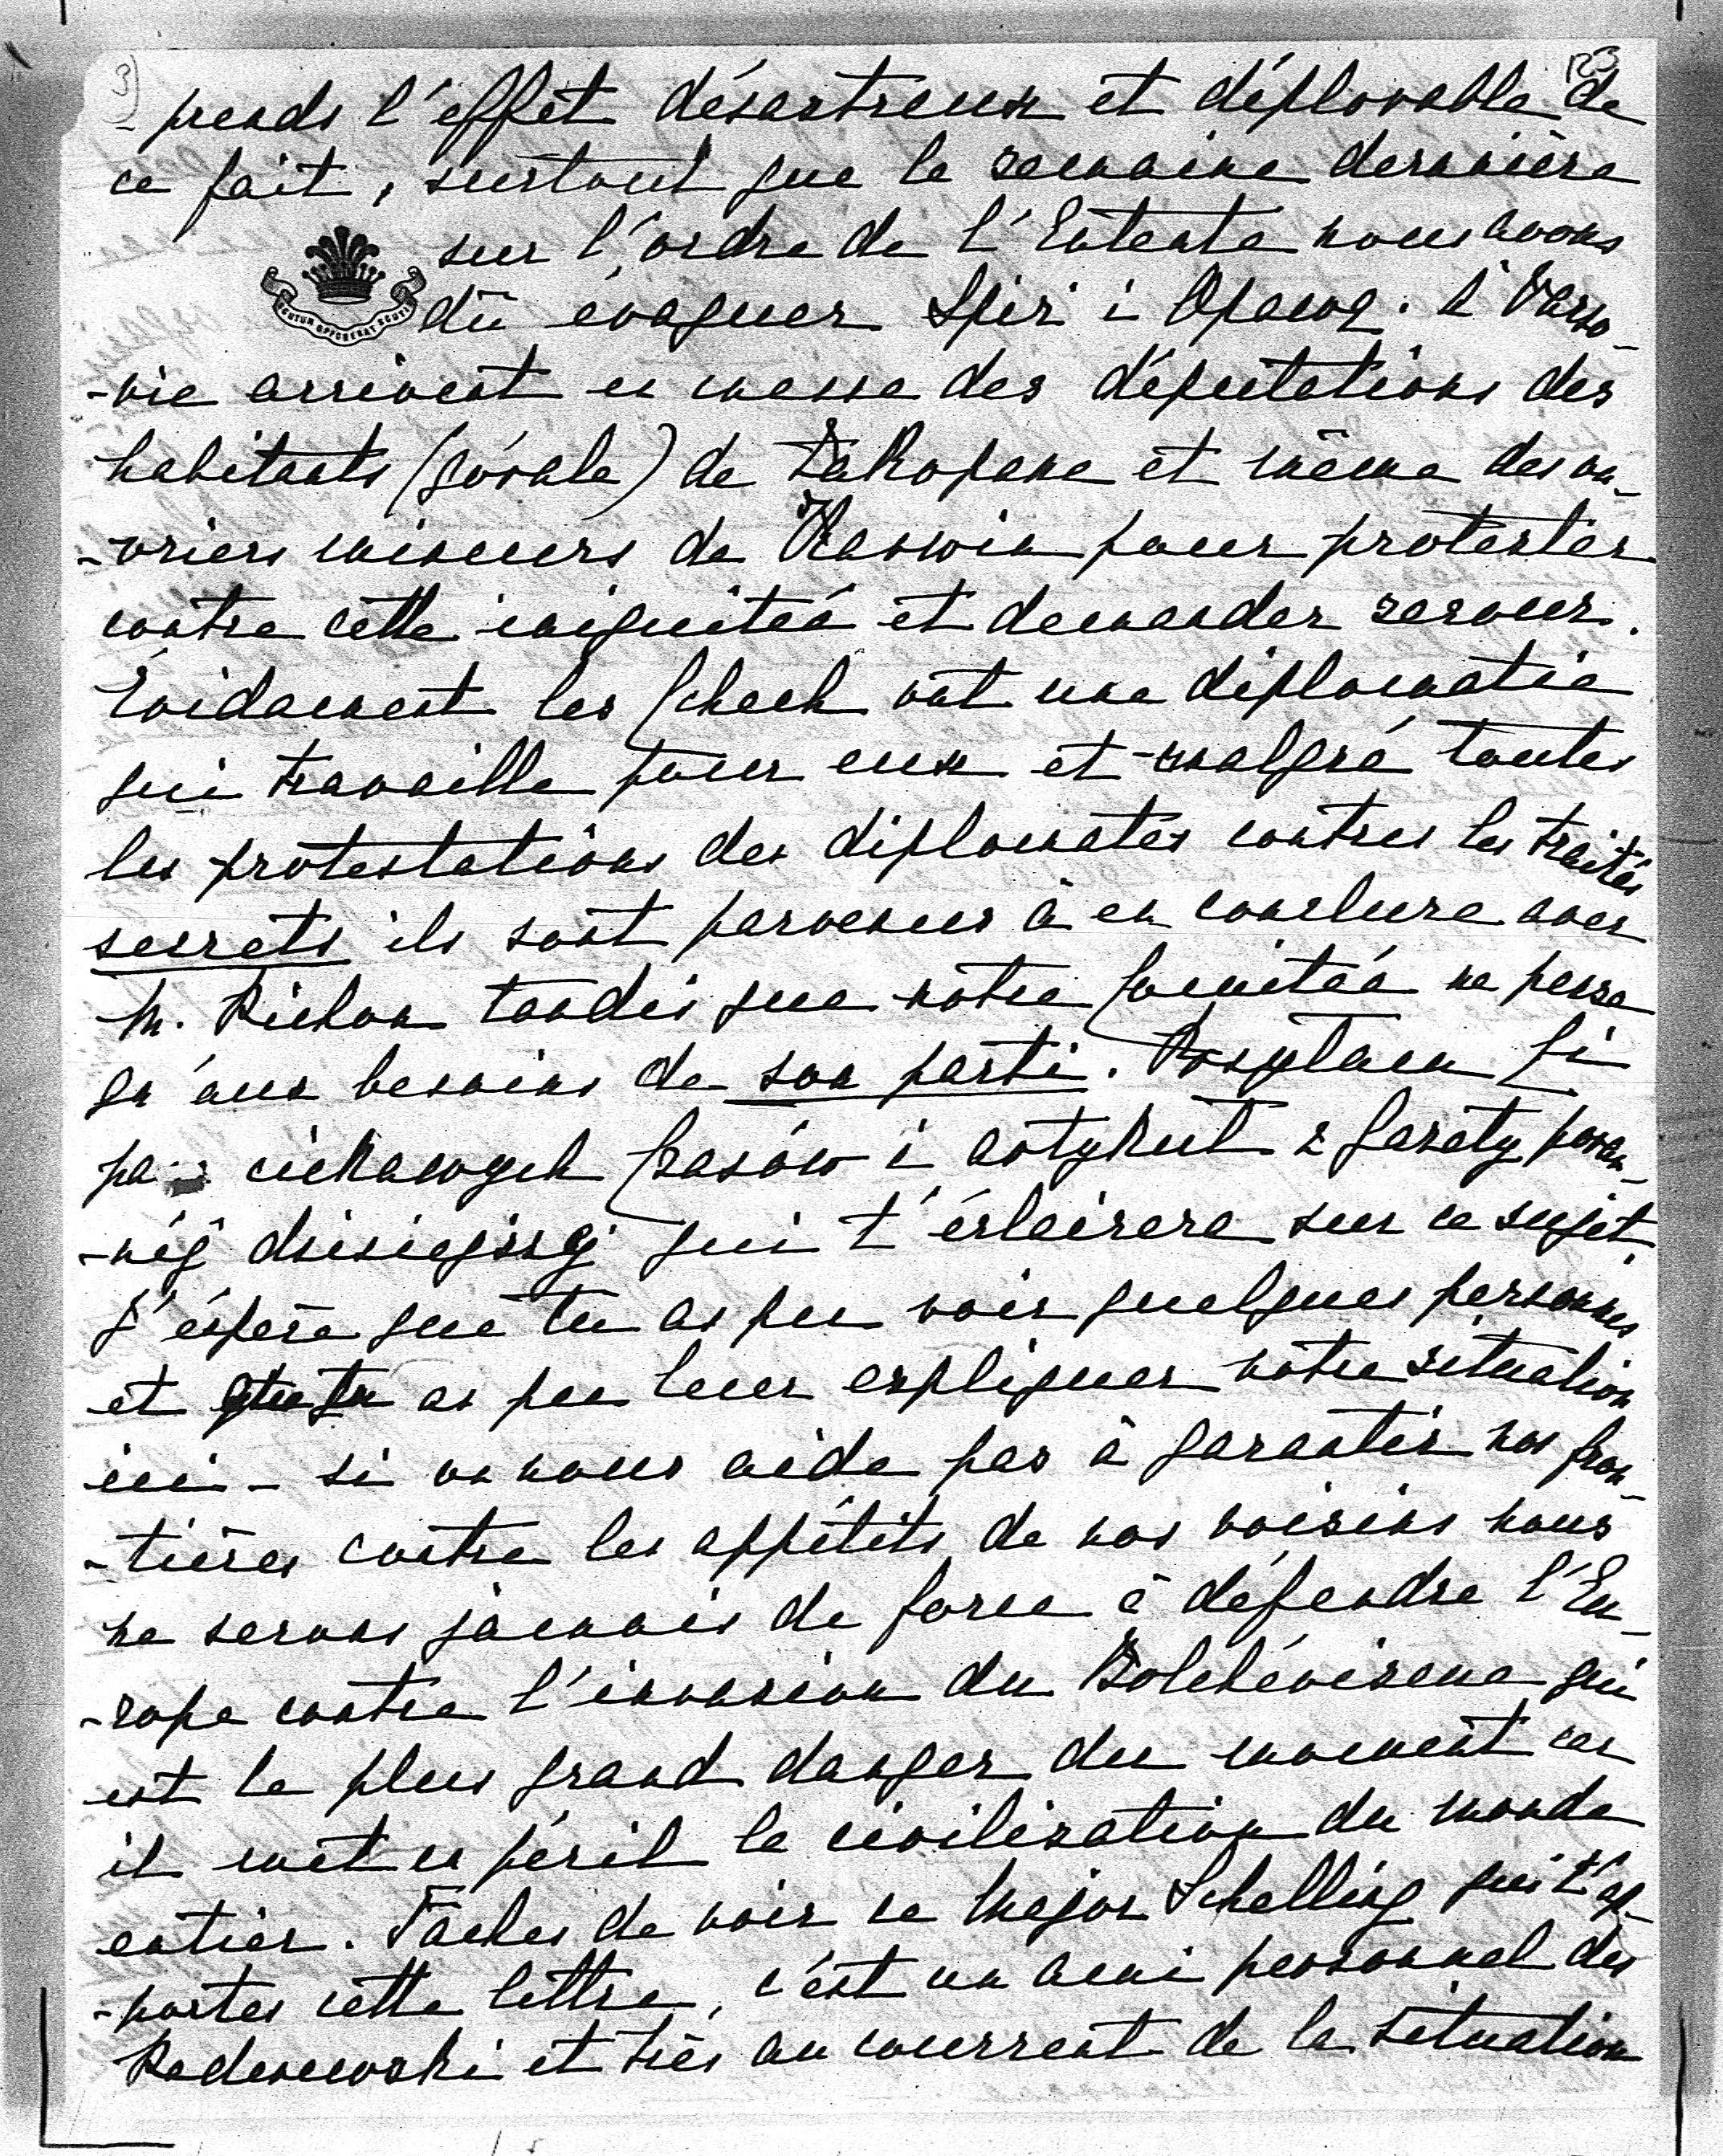 3) 123
- prends l'effet désastreux et déplorable de
ce fait, surtout que la semaine dernière
sur l'ordre de l'Entente nous avons
dû évaquer Spiż i Orawę. A Varso-
-vie arrivent en masse des députations des
habitants (górale) de Zakopane et même des ou-
-vriers mineurs de Karwin pour protester
contre cette iniquitée et demander secours.
Évidament les Cheeh ont une diplomatie
qui travaille pour eux et malgré toutes
les protestations des diplomates contres les traités
secrets ils sont parvenus à en conclure avec
M. Pichon tandis que notre Comitée ne pense
qu'aux besoins de son parti. Posyłam Ci
pa ciekawych czasów i artykuł z gazety poran-
-néj dzisiejszej qui t'éclairera sur ce sujet.
J'éspère que tu as pu voir quelques personnes
et que tu as pu leur expliquer notre situation
ici - si on nous aide pas à garantir nos fron-
-tières contre les appétits de nos voisins nous
ne serons jamais de force à défendre l'Eu-
-rope contre l'invasion du Bolchévisme qui
est le plus grand danger du moment car
il met en péril la civilisation du monde
entier. Taches de voir ce Major Schelling qui t'ap-
-portes cette lettre, c'est un ami personnel des
Paderewski et très au courrent de la situation